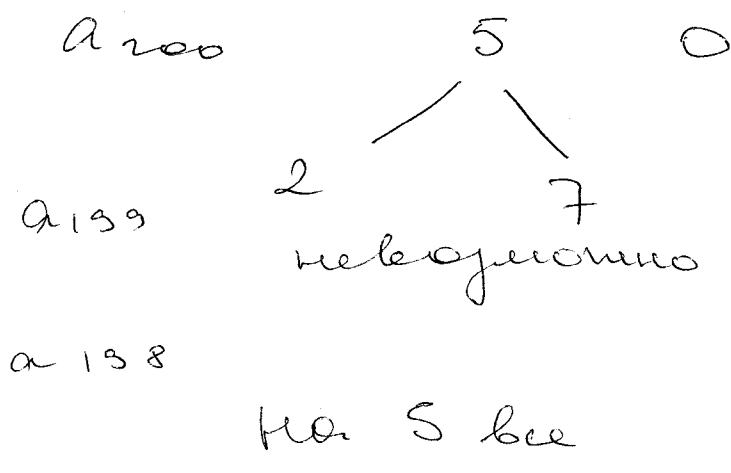 a 200 5 0
2 7
a 199
невозможно
a 198
на 5 все